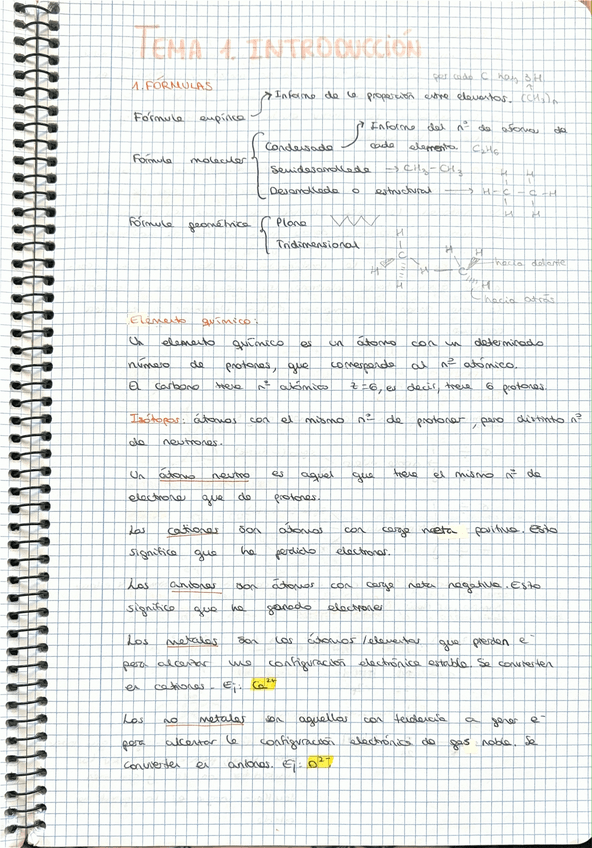 TEMA 1. INTRODUCCIÓN
por cada C hay 3H
1. FÓRMULAS
Fórmula empírica → Informa de la proporción entre elementos. (CH3)n
Fórmula molecular { Condensada → Informa del nº de átomos de
cada elemento. C2H6
Semidesarrollada → CH3-CH3
Desarrollada o estructural → H-C-C-H
H H
H H
Fórmula geométrica { Plana
Tridimensional
H
C
H
H
H
H
H
C
H
hacia delante
hacia atrás
Elemento químico:
Un elemento químico es un átomo con un determinado
número de protones, que corresponde al nº atómico.
El carbono tiene nº atómico z=6, es decir, tiene 6 protones.
Isótopos: átomos con el mismo nº de protones, pero distinto nº
de neutrones.
Un átomo neutro es aquel que tiene el mismo nº de
electrones que de protones.
Los cationes son átomos con carga neta positiva. Esto
significa que ha perdido electrones.
Los aniones son átomos con carga neta negativa. Esto
significa que ha ganado electrones
Los metales son los átomos/elementos que pierden e-
para alcanzar una configuración electrónica estable. Se convierten
en cationes. Ej: Ca2+
Los no metales son aquellos con tendencia a ganar e-
para alcanzar la configuración electrónica de gas noble. Se
convierten en aniones. Ej: O2-